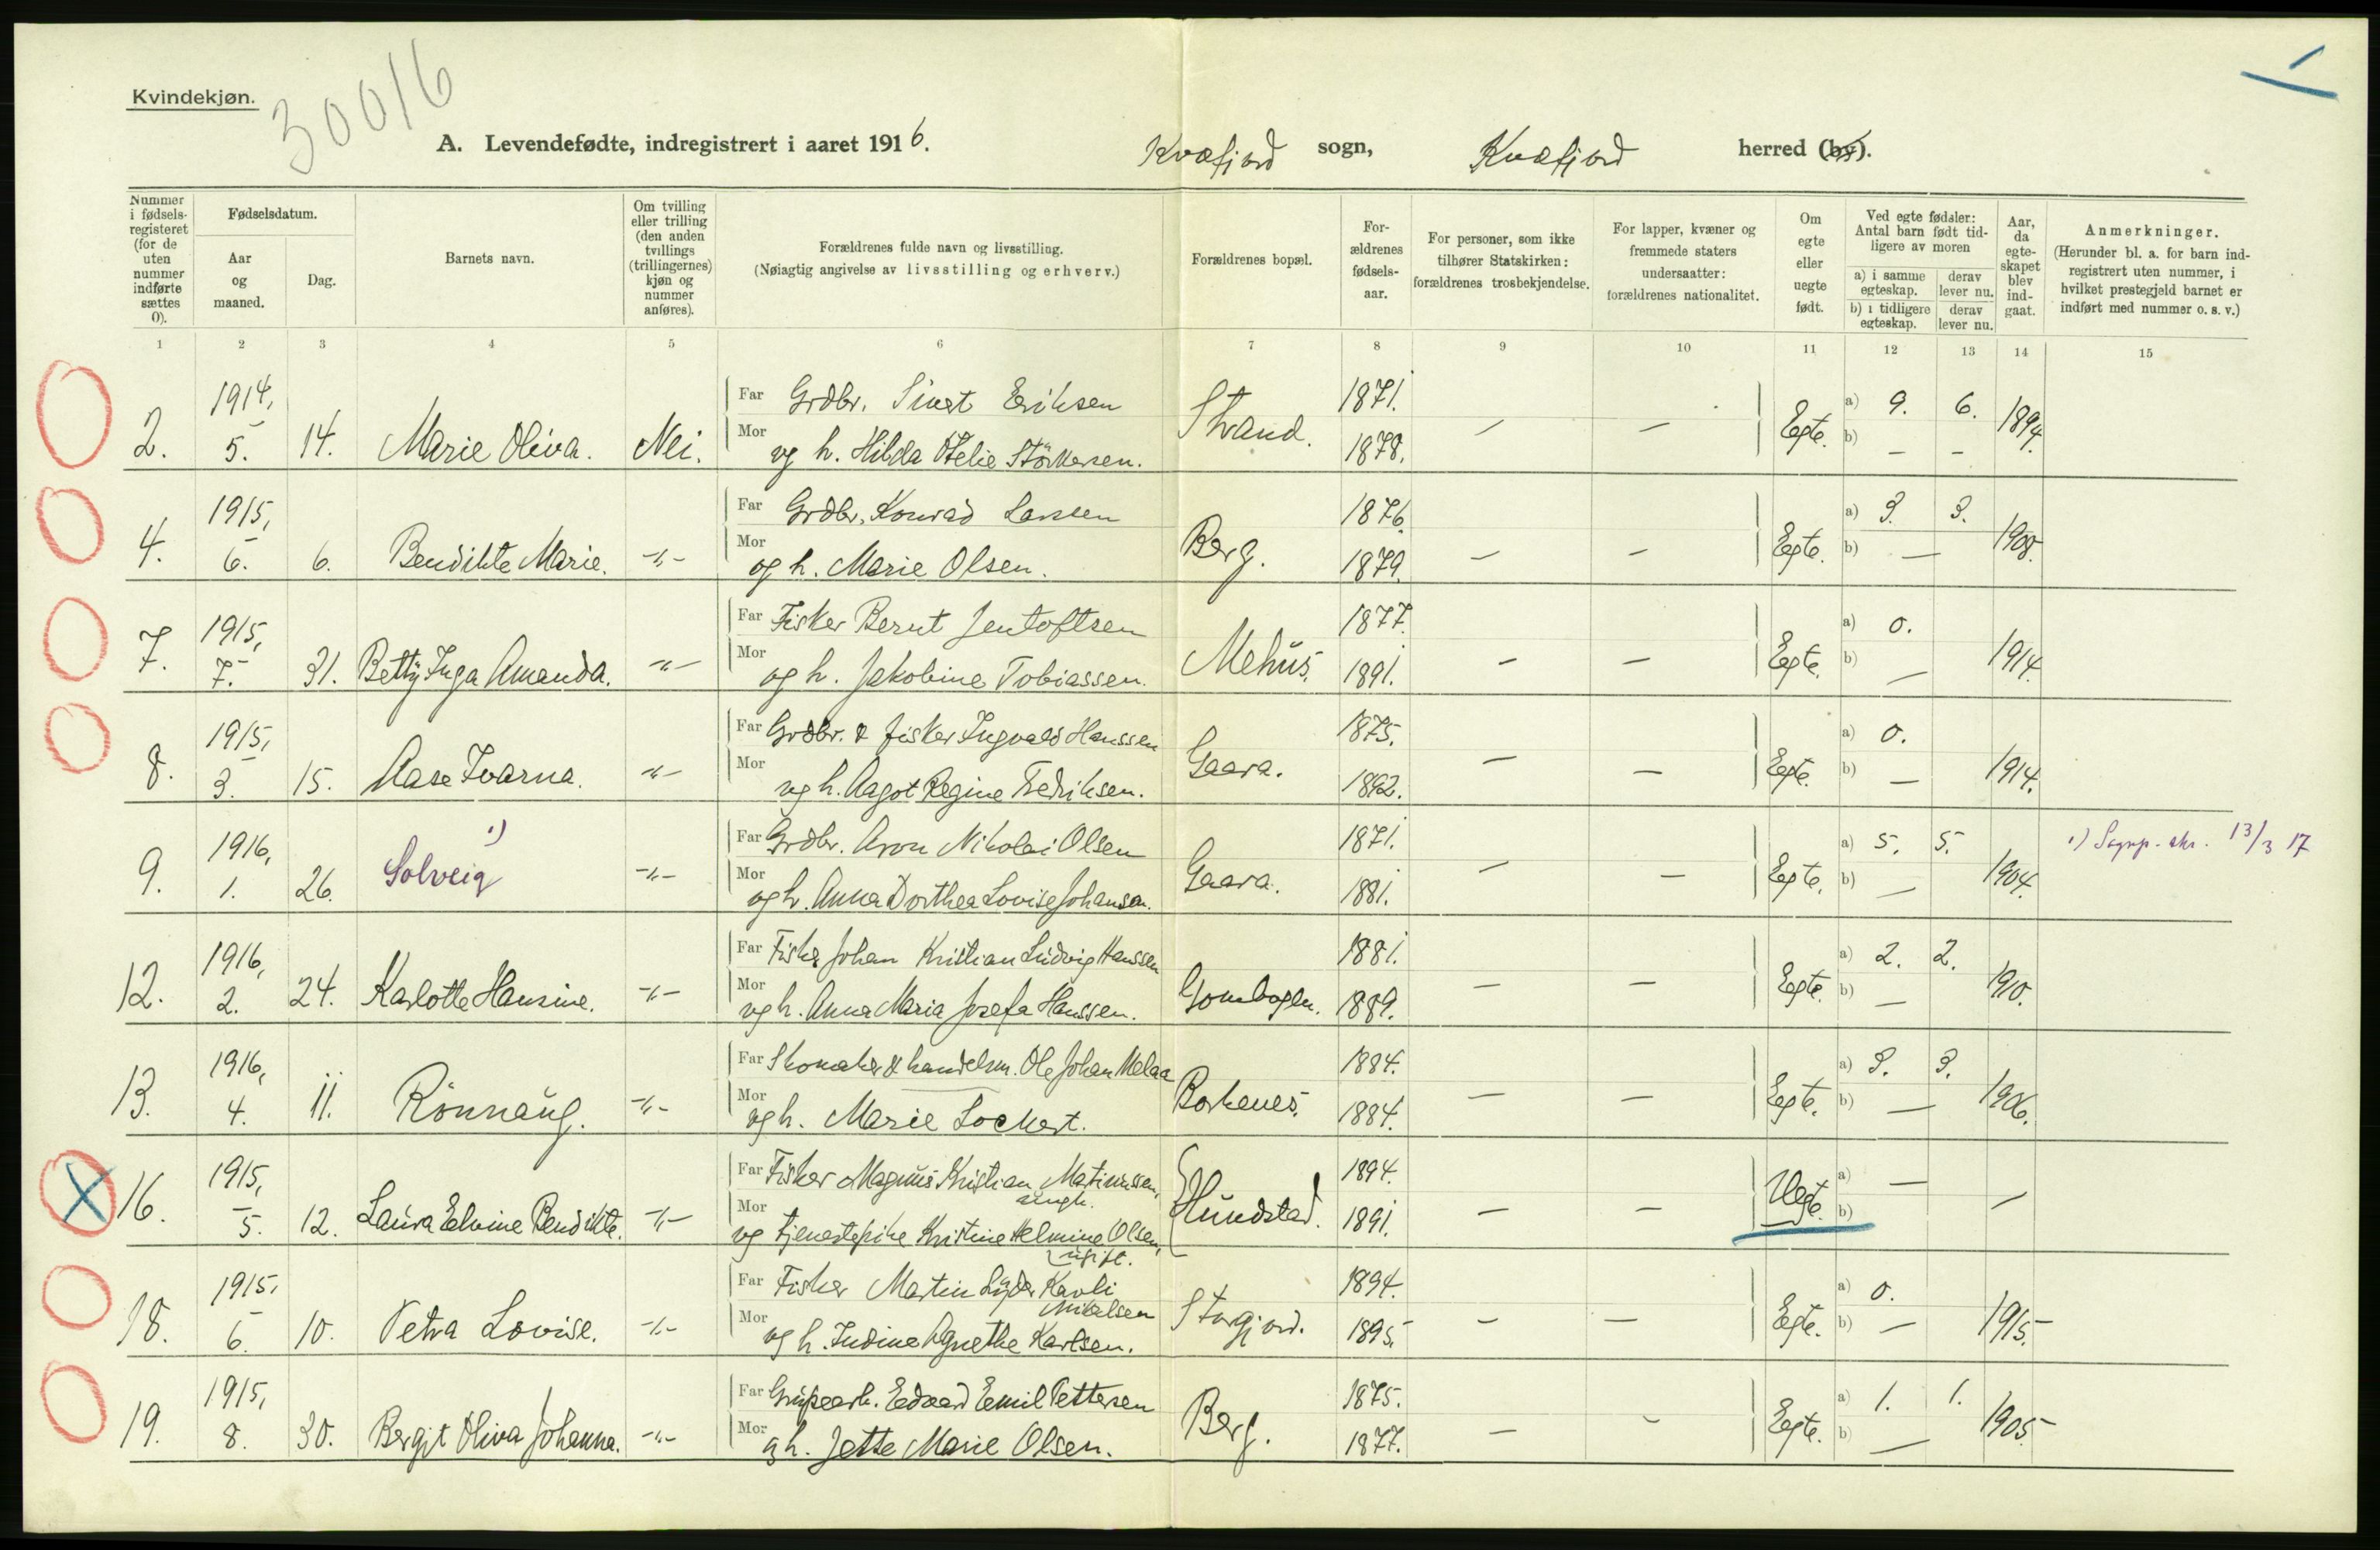 Kvindekjøn.
30016
A. Levendefødte, indregistrert i aaret 1916.
Kvæfjord sogn, Kvæfjord herred (by).
Nummer i fødsels-registeret (for de uten nummer indførte sættes 0).
Fødselsdatum.
Aar og maaned.
Dag.
Barnets navn.
Om tvilling eller trilling (den anden tvillings (trillingernes) kjøn og nummer anføres).
Forældrenes fulde navn og livsstilling.
(Nøiagtig angivelse av livsstilling og erhverv.)
Forældrenes bopæl.
For-ældrenes fødsels-aar.
For personer, som ikke tilhører Statskirken: forældrenes trosbekjendelse.
For lapper, kvæner og fremmede staters undersaatter: forældrenes nationalitet.
Om egte eller uegte født.
Ved egte fødsler: Antal barn født tid-ligere av moren
a) i samme egteskap.
derav lever nu.
b) i tidligere egteskap.
derav lever nu.
Aar, da egte-skapet blev ind-gaat.
Anmerkninger.
(Herunder bl. a. for barn ind-registrert uten nummer, i hvilket prestegjeld barnet er indført med nummer o. s. v.)
1 2 3 4 5 6 7 8 9 10 11 12 13 14 15
2. 1914, 5. 14. Marie Oliva. Nei. Far Grdbr. Sivert Eriksen Strand. 1871. — — Egte. a) 9. 6. 1894.
Mor og h. Hilda Otelie Störkersen. 1878. b) — —
4. 1915, 6. 6. Bendikte Marie. -"- Far Grdbr. Konrad Larssen Berg. 1876. — — Egte. a) 3. 3. 1908.
Mor og h. Marie Olsen. 1879. b) —
7. 1915, 7. 31. Betty Inga Amanda. -"- Far Fisker Bernt Jentoftsen Mehus. 1877. — — Egte. a) 0. 1914.
Mor og h. Jakobine Tobiassen. 1891. b) —
8. 1915, 3. 15. Aase Ivarna. -"- Far Grdbr. & fisker Ingvald Hanssen Gaara. 1875. — — Egte. a) 0. 1914.
Mor og h. Aagot Regine Fredriksen. 1892. b) —
9. 1916, 1. 26. Solveig 1) -"- Far Grdbr. Aron Nikolai Olsen Gaara. 1871. — — Egte. a) 5. 5. 1904. 1) 13/3 17
Mor og h. Anna Dorthea Lovise Johansen. 1881. b) —
12. 1916, 2. 24. Karlotte Hansine. -"- Far Fisker Johan Kristian Ludvig Hanssen 1881. — — Egte. a) 2. 2. 1910.
Mor og h. Anna Maria Josefa Hanssen. 1889. b) —
13. 1916, 4. 11. Rönnaug. -"- Far Skomaker & handelsm. Ole Johan Melaa Borkenes. 1884. — — Egte. a) 3. 3. 1906.
Mor og h. Marie Lockert. 1884. b) —
16. 1915, 5. 12. Laura Elvine Bendikte. -"- Far Fisker Magnus Kristian Martinussen, ungk. Hundstad. 1894. — — Uegte. a) — —
Mor og tjenestepike Kristine Helmine Olsen, ugift. 1891. b)
18. 1915, 6. 10. Petra Lovise. -"- Far Fisker Martin Lyder Kavli Mikalsen Storjord. 1894. — — Egte. a) 0. 1915.
Mor og h. Indine Agnethe Karlsen. 1895. b) —
19. 1915, 8. 30. Bergit Oliva Johanna. -"- Far Grubearb. Edvard Emil Pettersen Berg. 1875. — — Egte. a) 1. 1. 1905.
Mor og h. Jette Marie Olsen. 1877. b) —